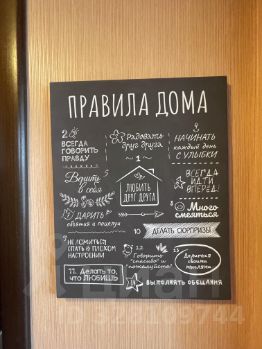 ПРАВИЛА ДОМА
2
ВСЕГДА
ГОВОРИТЬ
ПРАВДУ
РАДОВАТЬ
ДРУГ ДРУГА
НАЧИНАТЬ
КАЖДЫЙ ДЕНЬ
С УЛЫБКИ
1
ЛЮБИТЬ
ДРУГ ДРУГА
Верить
в себя
ВСЕГДА
ИДТИ
ВПЕРЕД!
ДАРИТЬ
объятия и поцелуи
8
Много
смеяться
10
ДЕЛАТЬ СЮРПРИЗЫ
НЕ ЛОЖИТЬСЯ
СПАТЬ В ПЛОХОМ
НАСТРОЕНИИ
12
Говорить
"спасибо" и
"пожалуйста!"
11. Делать то,
что ЛЮБИШЬ
ВЫПОЛНЯТЬ ОБЕЩАНИЯ